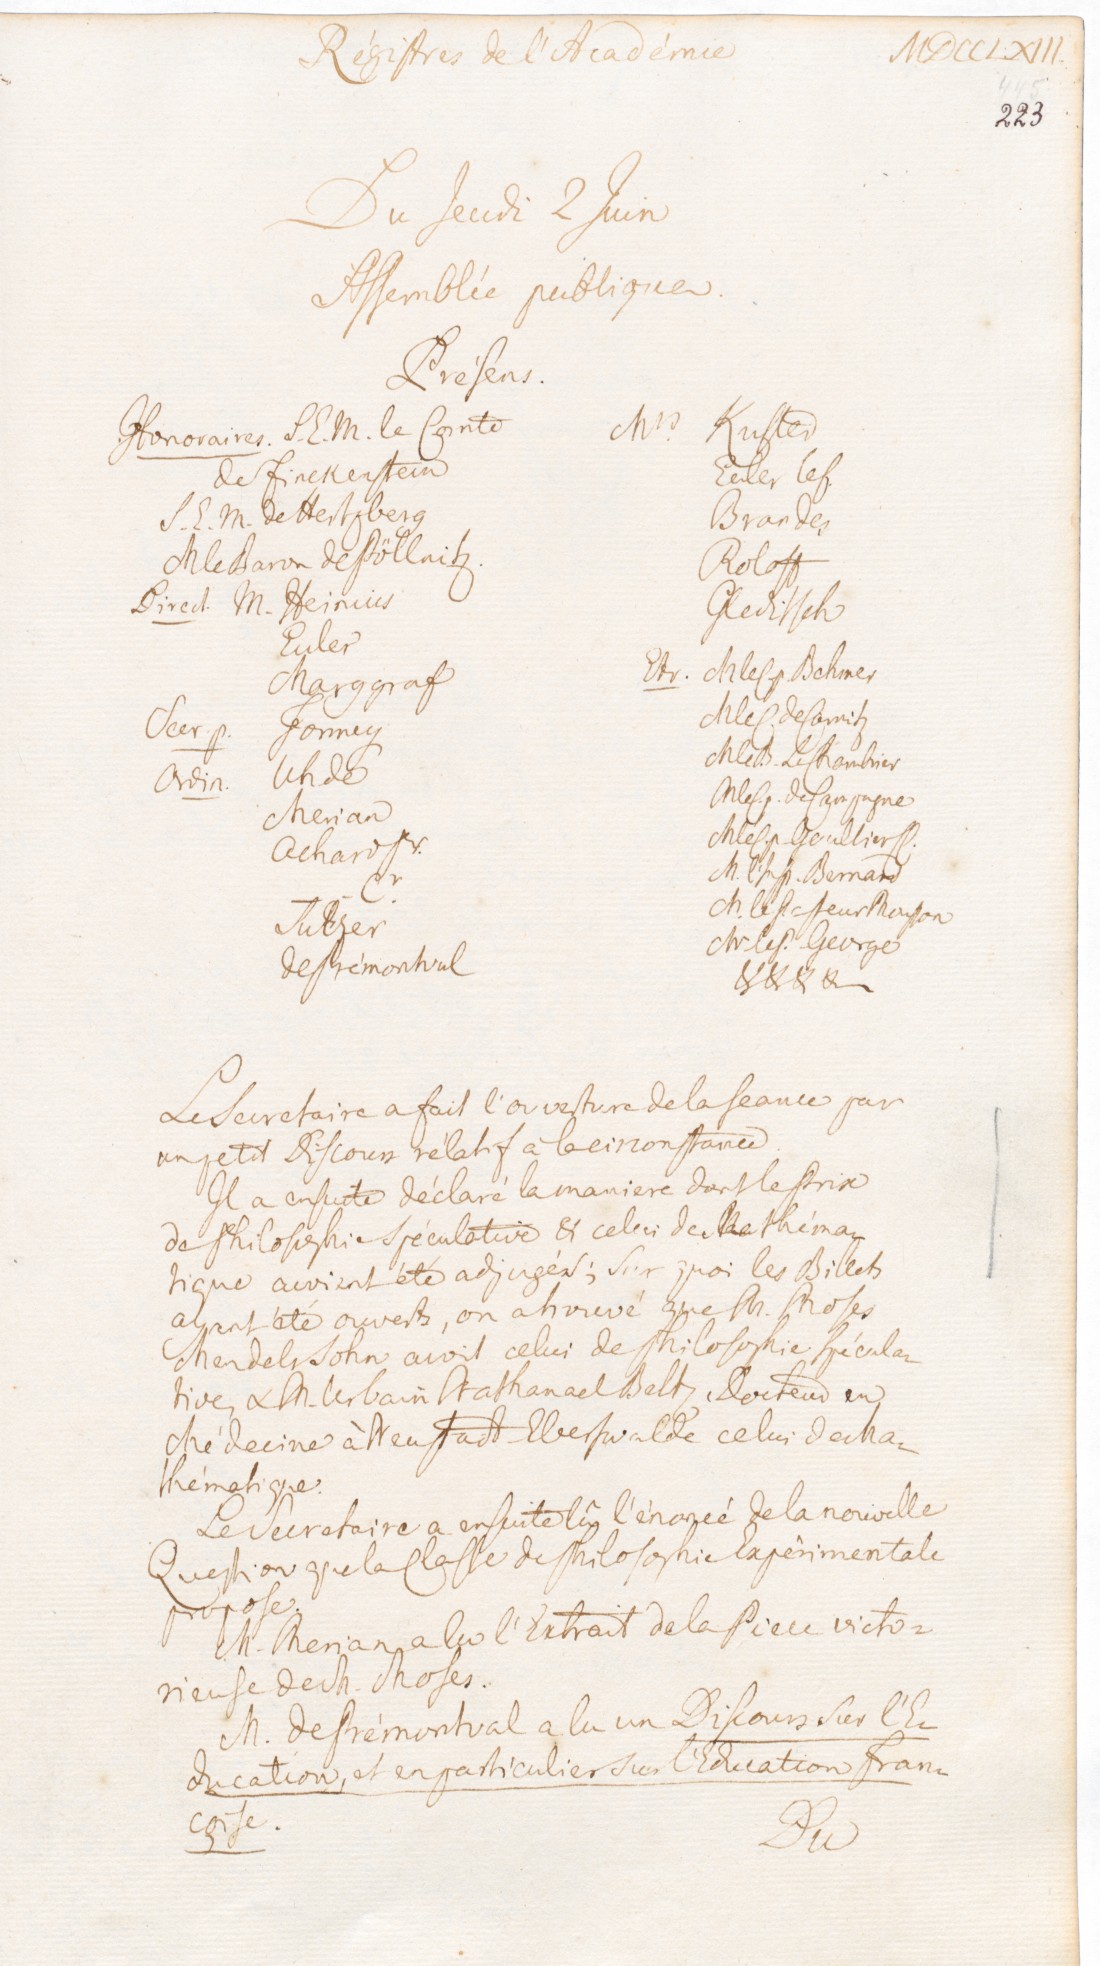 Régistres de l'Académie MDCCLXIII.
445
223
Du Jeudi 2 Juin
Assemblée publique.
Présens.
Honoraires. S. E. M. le Comte
de Finckenstein
S. E. M. de Hertzberg
M le Baron de Pöllnitz.
Direct. M. Heinius
Euler
Marggraf
Secr. p. Formey
Ordin. Uhde
Merian
Achard Pr.
- Cr.
Sulzer
de Prémontval
Mrs Kuster
Euler le f.
Brandes
Roloff
Gleditsch
Etr. M le C. p. Behmer
M le C. de Carnitz
M le B. Le Chambrier
M le C. p. de Campagne
M le C. p. Gaultier
M. l'Insp. Bernard
M. le Pasteur Mouson
M. le P. George
& & & &
Le Secretaire a fait l'ouverture de la seance par
un petit Discours rélatif à la circonstance.
Il a ensuite déclaré la maniere dont le Prix
de Philosophie spéculative & celui de Mathéma-
tique avoient été adjugés; sur quoi les Billets
ayant été ouverts, on a trouvé que M. Moses
Mendels Sohn avoit celui de Philosophie spécula-
tive, & M. Urbain Nathanael Beltz, Docteur en
Médecine à Neustadt-Eberswalde celui de Ma-
thématique.
Le Secretaire a ensuite lû l'énoncé de la nouvelle
Question que la Classe de Philosophie Expérimentale
propose.
M. Merian a lu l'Extrait de la Piece victo-
rieuse de M. Moses.
M. de Prémontval a lu un Discours sur l'E-
ducation, et en particulier sur l'Education Fran-
çoise.
Du